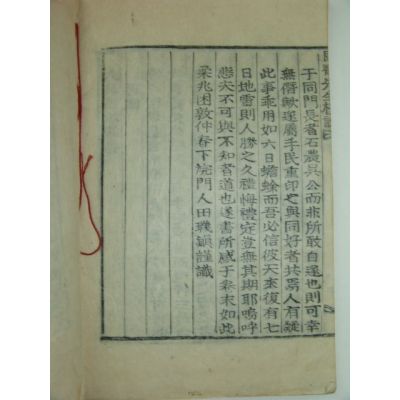 于同門長者石農吳公而非所敢自遑也則可幸
無僭猷遂屬手民重印之與同好者共焉人有疑
此事乖用如六日蟾蜍而吾必信彼天來復有七
日地雷則人勝之久禮悔禮定豈無其期耶嗚呼
悲夫不可與不知者道也遂書所感于卷末如此
柔兆困敦仲春下浣門人田璣鎭謹識